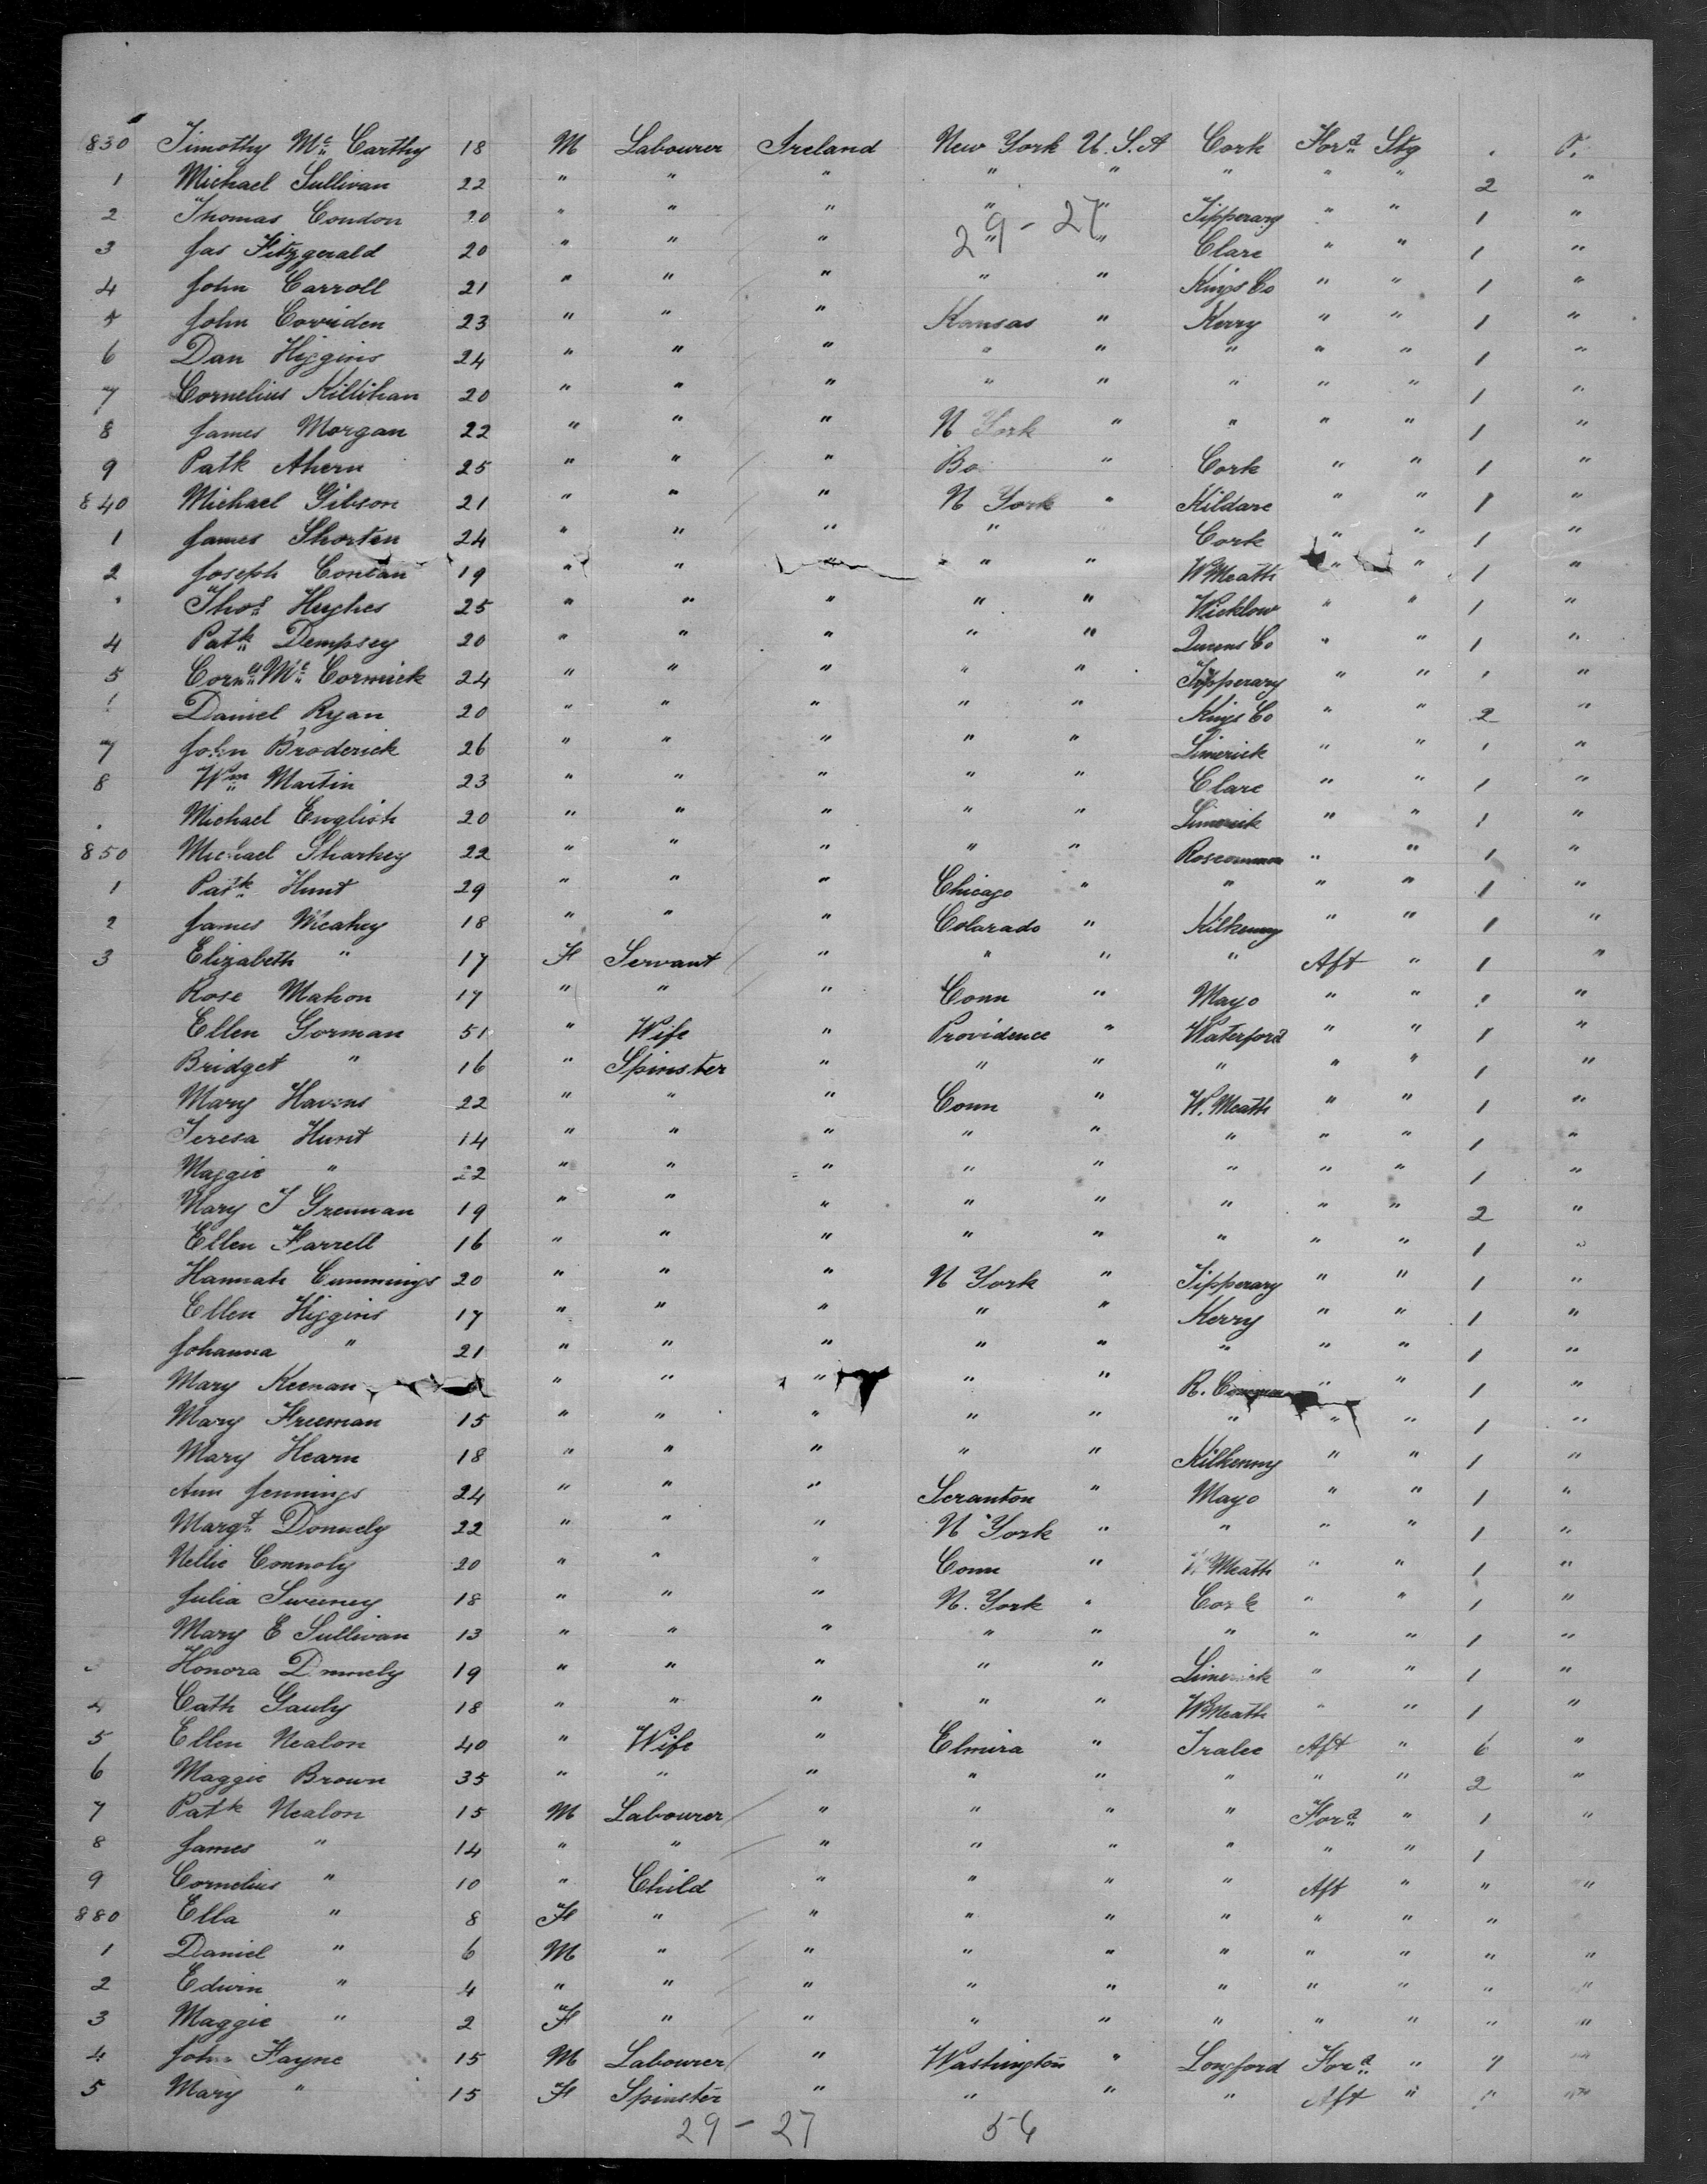 830 Timothy Mc Carthy 18 M Labourer Ireland New York U.S.A Cork Ford Stg . P.
1 Michael Sullivan 22 " " " " " " " " 2 "
2 Thomas Condon 20 " " " " " Tipperary " " 1 "
29-27
3 Jas Fitzgerald 20 " " " " " Clare " " 1 "
4 John Carroll 21 " " " " " Kings Co " " 1 "
5 John Corriden 23 " " " Kansas " Kerry " " 1 "
6 Dan Higgins 24 " " " " " " " " 1 "
7 Cornelius Killihan 20 " " " " " " " " 1 "
8 James Morgan 22 " " " N York " " " " 1 "
9 Patk Ahern 25 " " " Bo " Cork " " 1 "
840 Michael Gibson 21 " " " N York " Kildare " " 1 "
1 James Shorten 24 " " " " Cork " " 1 "
2 Joseph Conlan 19 " " " " " W Meath " " 1 "
" Thos Hughes 25 " " " " " Wicklow " " 1 "
4 Patk Dempsey 20 " " " " " Queens Co " " 1 "
5 Corns Mc Cormick 24 " " " " " Tipperary " " 1 "
Daniel Ryan 20 " " " " " Kings Co " " 2 "
7 John Broderick 26 " " " " " Limerick " " 1 "
8 Wm Martin 23 " " " " " Clare " " 1 "
. Michael English 20 " " " " " Limerick " " 1 "
850 Michael Sharkey 22 " " " " " Roscommon " " 1 "
1 Patk Hunt 29 " " " Chicago " " " " 1 "
2 James Meahey 18 " " " Colorado " Kilkenny " " 1 "
3 Elizabeth " 17 F Servant " " " " Aft " 1 "
Rose Mahon 17 " " " Conn " Mayo " " 1 "
Ellen Gorman 51 " Wife " Providence " Waterford " " 1 "
Bridget " 16 " Spinster " " " " " " 1 "
Mary Havens 22 " " " Conn " W. Meath " " 1 "
Teresa Hunt 14 " " " " " " " " 1 "
Maggie " 22 " " " " " " " " 1 "
Mary J Grennan 19 " " " " " " " " 2 "
Ellen Farrell 16 " " " " " " " " 1 "
Hannah Cummings 20 " " " N York " Tipperary " " 1 "
Ellen Higgins 17 " " " " " Kerry " " 1 "
Johanna " 21 " " " " " " " " 1 "
Mary Keenan " " " " " R. Common " " 1 "
Mary Freeman 15 " " " " " " " " 1 "
Mary Hearn 18 " " " " " Kilkenny " " 1 "
Ann Jennings 24 " " " Scranton " Mayo " " 1 "
Margt Donnely 22 " " " N York " " " " 1 "
Nellie Connoly 20 " " " Conn " W Meath " " 1 "
Julia Sweeney 18 " " " N. York " Cork " " 1 "
Mary E Sullivan 13 " " " " " " " " 1 "
Honora Donnely 19 " " " " " Limerick " " 1 "
4 Cath Gauly 18 " " " " " W Meath " " 1 "
5 Ellen Nealon 40 " Wife " Elmira " Tralee Aft " 6 "
6 Maggie Brown 35 " " " " " " " " 2 "
7 Patk Nealon 15 M Labourer " " " " Ford " 1 "
8 James " 14 " " " " " " " " 1
9 Cornelius " 10 " Child " " " " Aft " " "
880 Ella " 8 F " " " " " " " "
1 Daniel " 6 M " " " " " " " " "
2 Edwin " 4 " " " " " " " " " "
3 Maggie " 2 F " " " " " " " " "
4 John Fayne 15 M Labourer " Washington " Longford Ford " 1 "
5 Mary " 15 F Spinster " " " " Aft " "
29-27 56